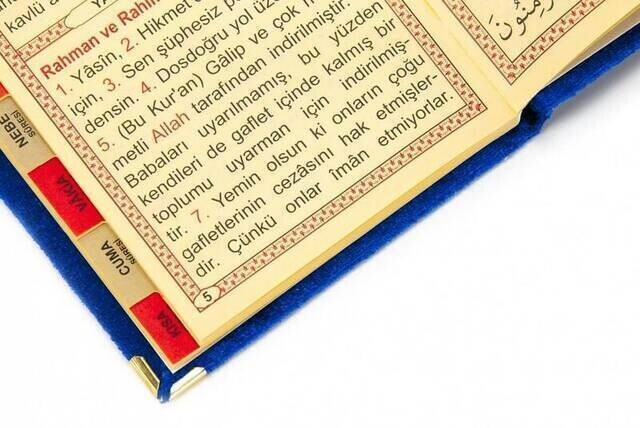 kavlü
YÂ
Rahman ve Rahî
1. Yâsîn, 2. Hikmet
için, 3. Sen şüphesiz p
densin. 4. Dosdoğru yol üze
5. (Bu Kur'an) Gâlip ve çok
metli Allah tarafından indirilmiştir.
Babaları uyarılmamış, bu yüzden
kendileri de gaflet içinde kalmış bir
toplumu uyarman için indirilmiş-
tir. 7. Yemin olsun ki onların çoğu
gafletlerinin cezâsını hak etmişler-
dir. Çünkü onlar îmân etmiyorlar.
5
NEBE
SÛRESİ
VÂKIA
CUMA
SÛRESİ
KISA